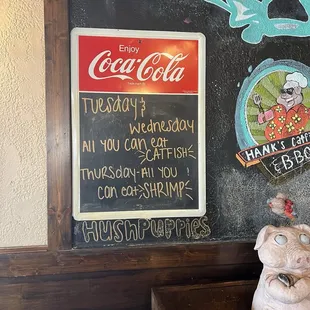 Enjoy
Coca-Cola
Tuesday &
Wednesday
All you can eat
CATFISH
Thursday - All you
can eat SHRIMP
HUSHPUPPIES
HANK'S Catfi
& B-BQ